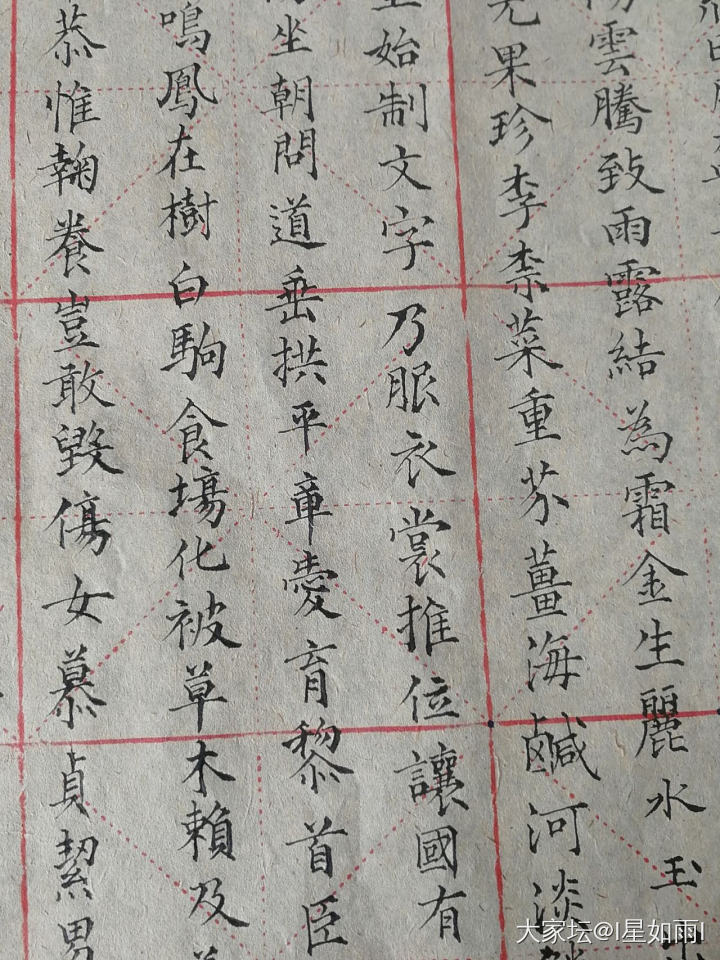 雲騰致雨露結為霜金生麗水玉
果珍李柰菜重芥薑海鹹河淡
始制文字乃服衣裳推位讓國有
坐朝問道垂拱平章愛育黎首臣
鳴鳳在樹白駒食場化被草木賴及
恭惟鞠養豈敢毀傷女慕貞絜男
大家坛@I星如雨I